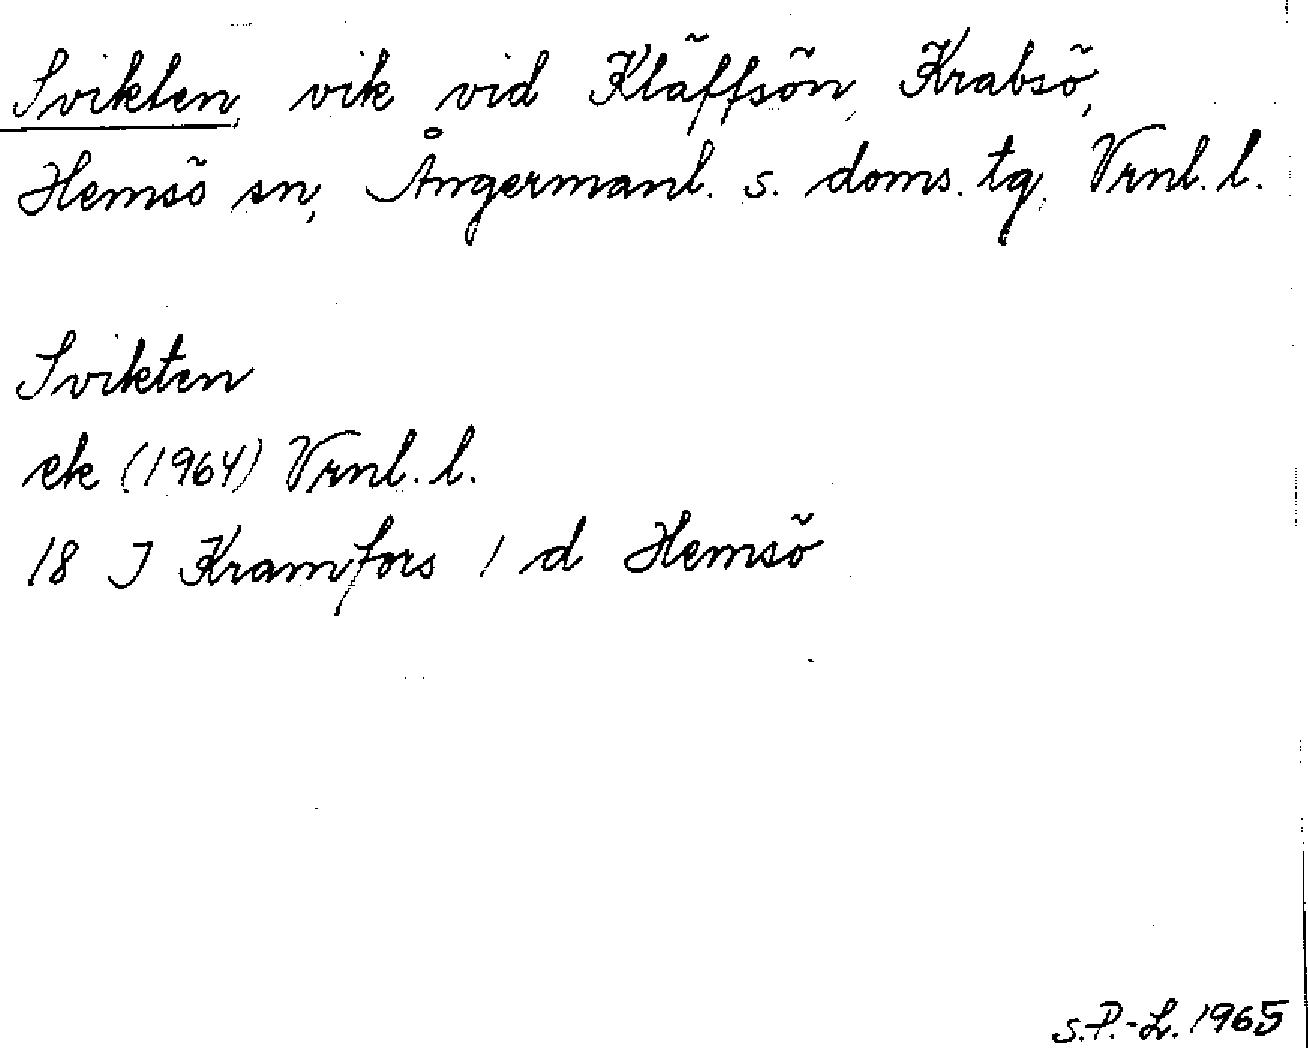 Svikten, vik vid Kläffsön, Krabsö,
Hemsö sn, Ångermanl. s. doms. tg. Vrnl. l.
Svikten
ek (1964) Vrnl. l.
18 J Kramfors 1 d Hemsö
S.P.-L. 1965